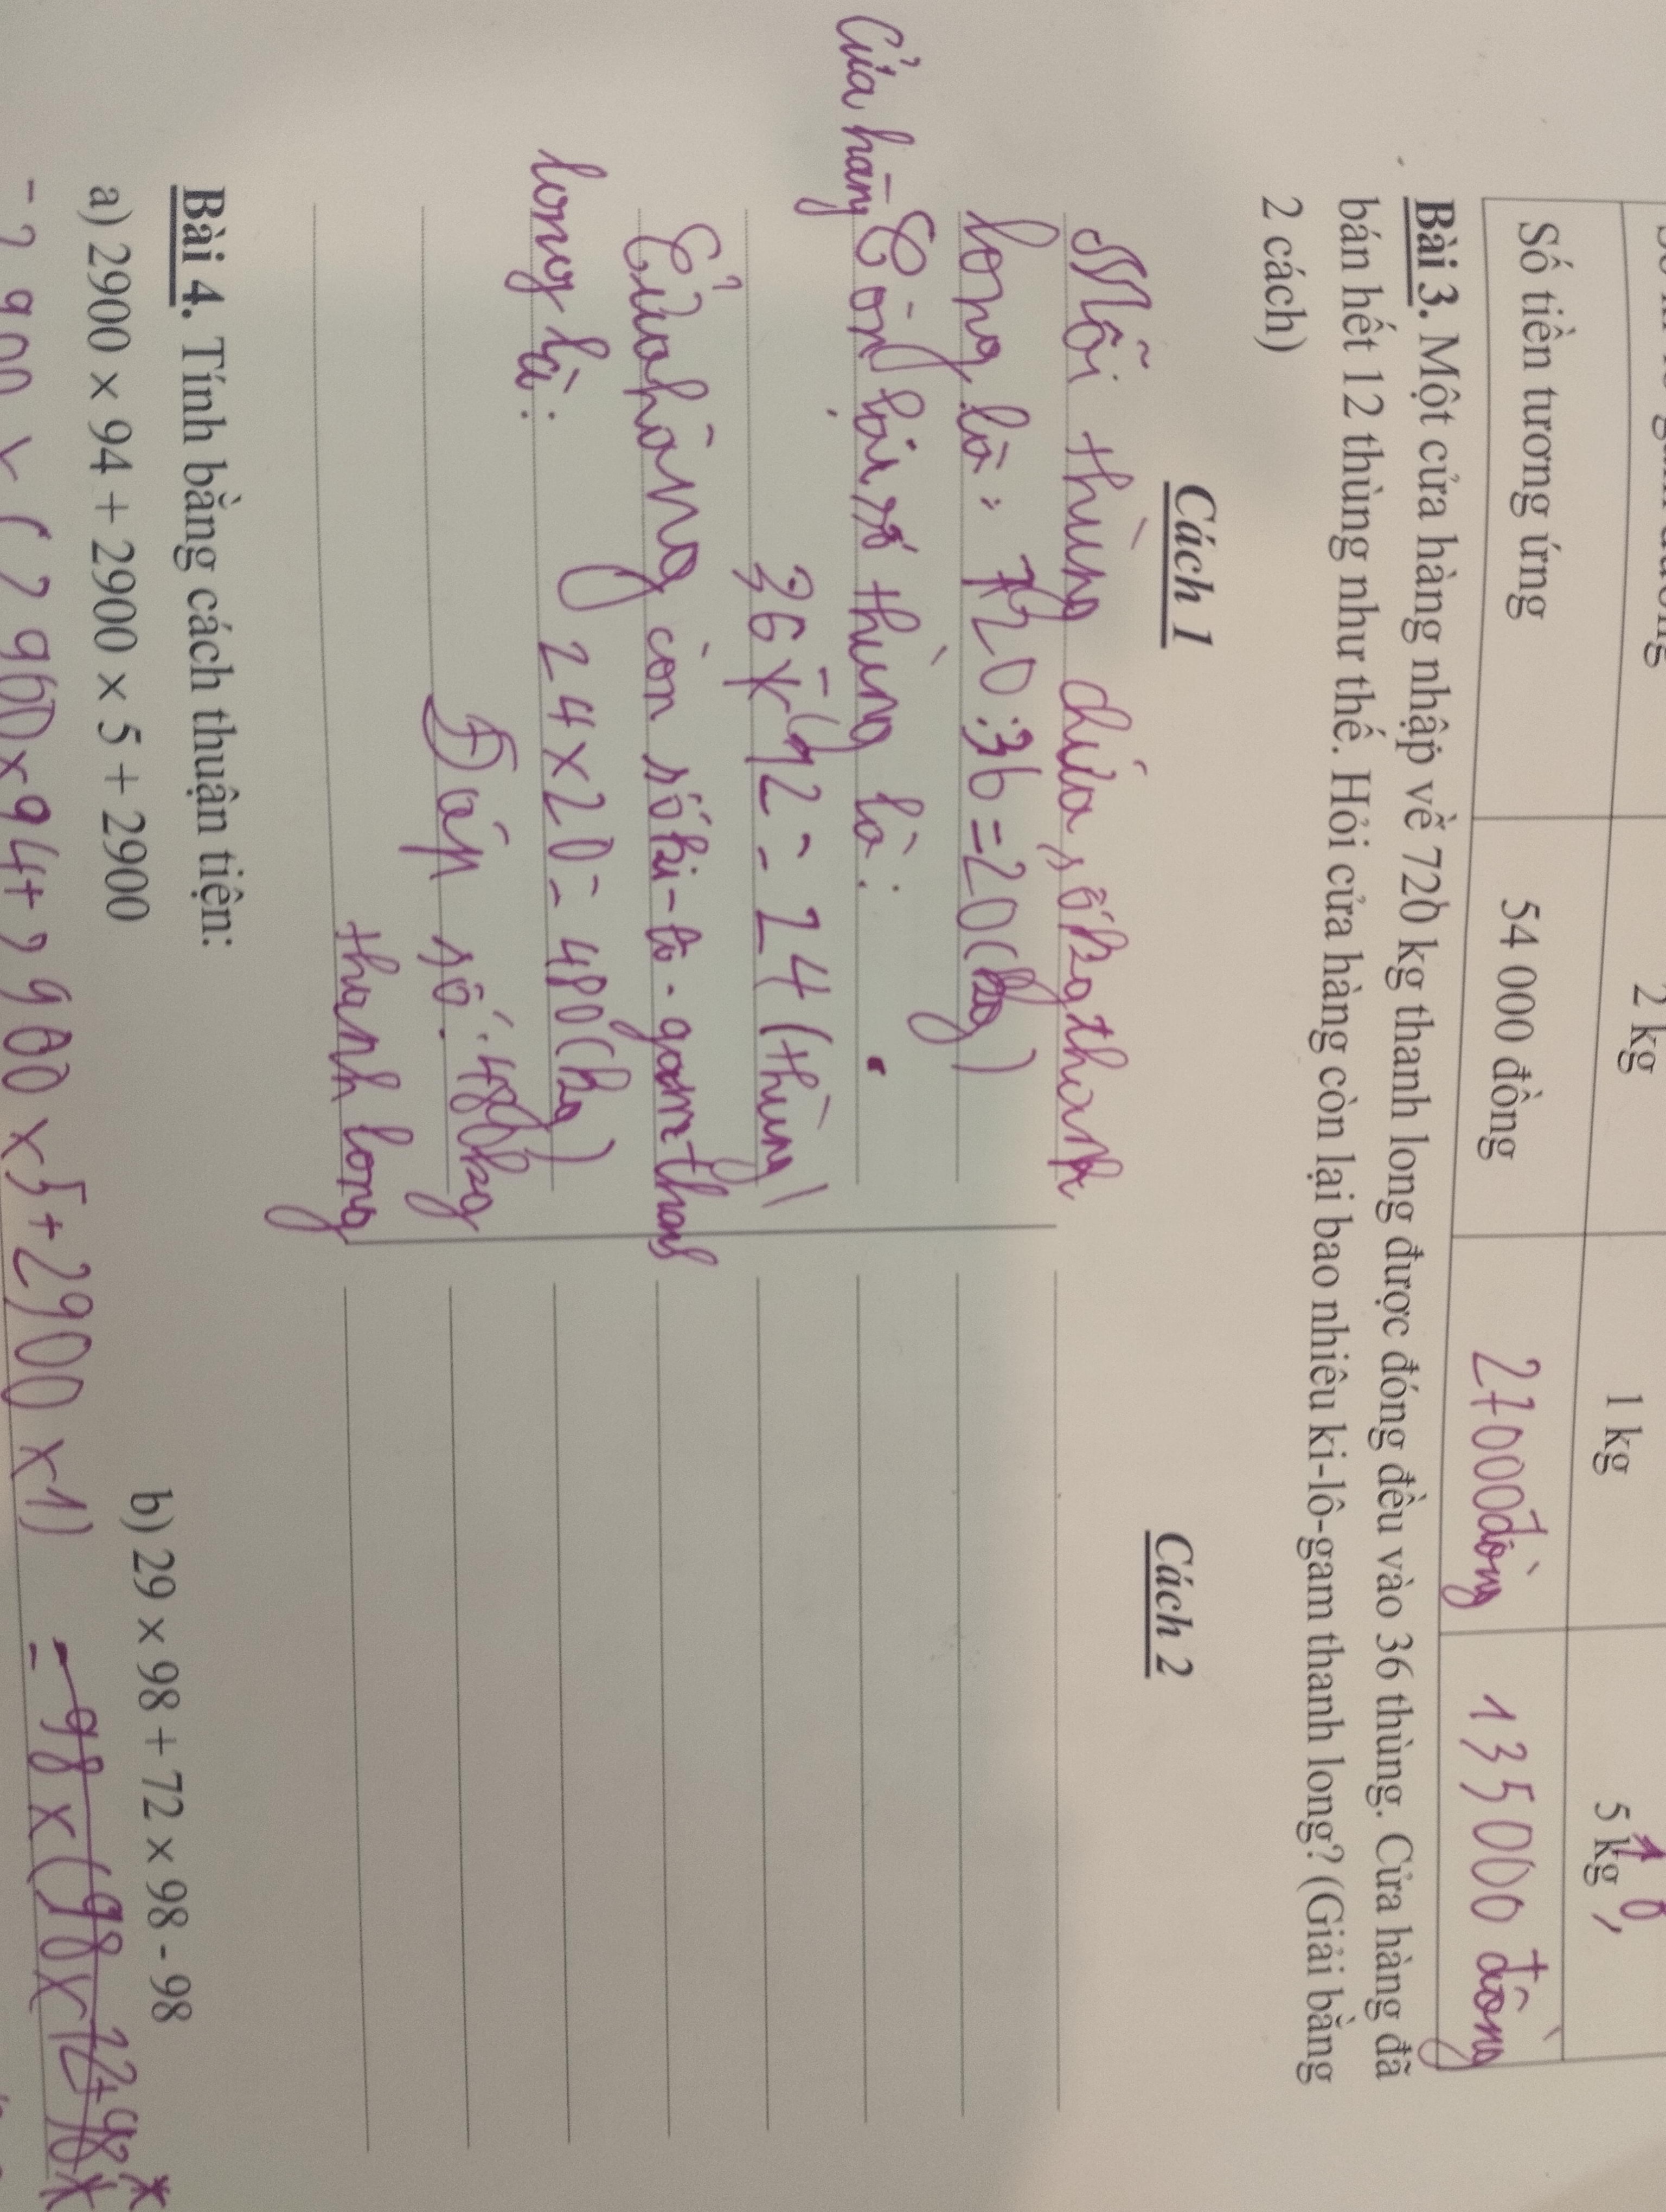 2 kg 1 kg 5 kg
Số tiền tương ứng 54 000 đồng 27000đồng 135000 đồng
Bài 3. Một cửa hàng nhập về 720 kg thanh long được đóng đều vào 36 thùng. Cửa hàng đã
bán hết 12 thùng như thế. Hỏi cửa hàng còn lại bao nhiêu ki-lô-gam thanh long? (Giải bằng
2 cách)
Cách 1
Mỗi thùng chứa số kg thanh
long là: 720:36=20(kg)
Cửa hàng còn lại số thùng là:
36 - 12 = 24 (thùng)
Cửa hàng còn số ki-lô-gam thanh
long là:
24x20=480(kg)
Đáp số: 480kg
thanh long
Cách 2
Bài 4. Tính bằng cách thuận tiện:
a) 2900 × 94 + 2900 × 5 + 2900
b) 29 × 98 + 72 × 98 - 98
=2900 x (2900x94+2900x5+2900x1)